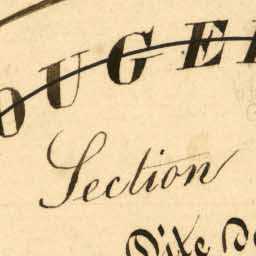 OUGE
Section
Dite de